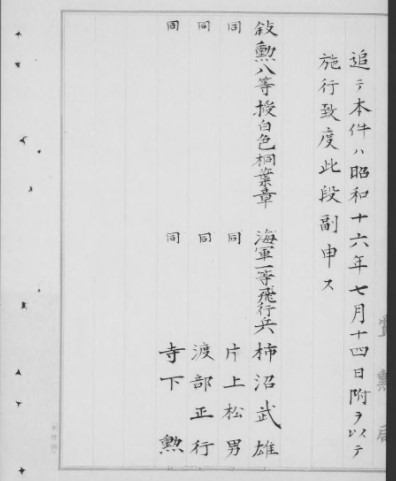 追テ本件ハ昭和十六年七月十四日附ヲ以テ
施行致度此段副申ス
敍勲八等授白色桐葉章 海軍一等飛行兵 柿沼武雄
同 同 片上松男
同 同 渡部正行
同 同 寺下勲